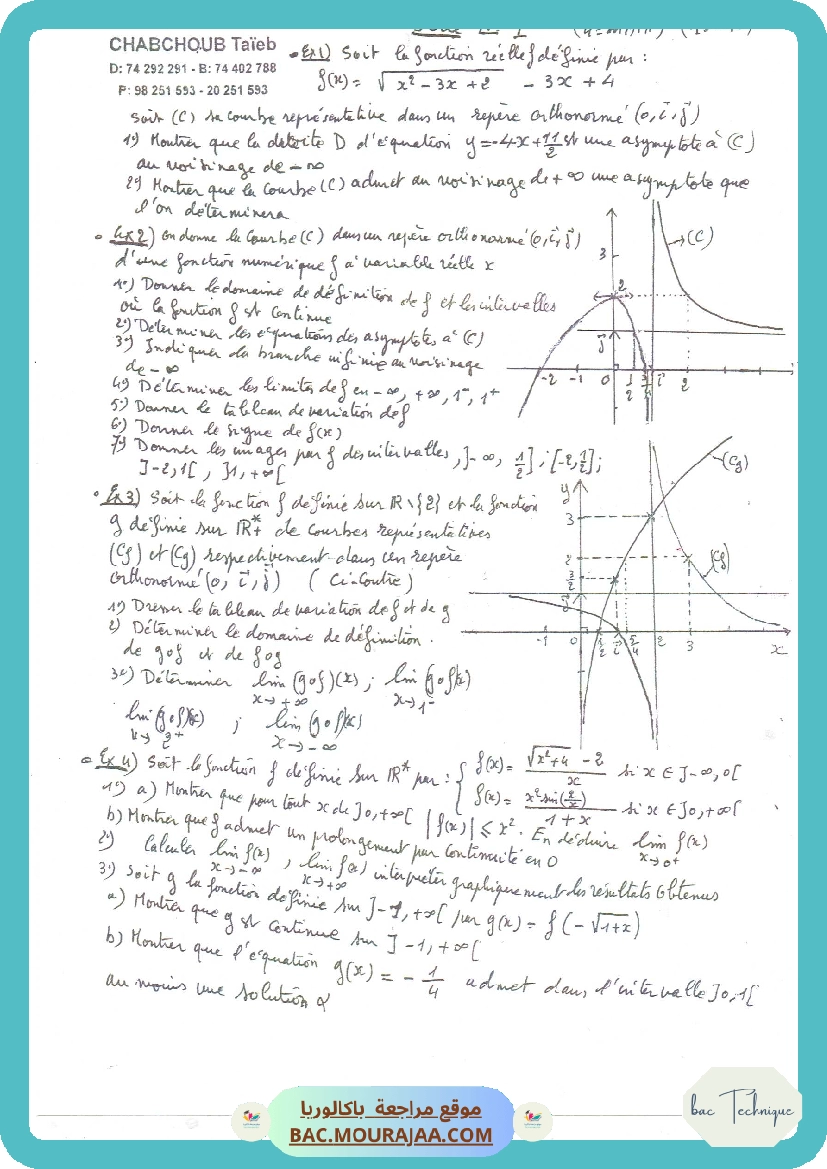 CHABCHOUB Taïeb
D: 74 292 291 - B: 74 402 788
P: 98 251 593 - 20 251 593
Ex1) Soit la fonction réelle f définie par :
f(x) = √(x² - 3x + 2) - 3x + 4
Soit (C) sa courbe représentative dans un repère orthonormé (o, i, j)
1°) Montrer que la droite D d'équation y = -4x + 11/2 est une asymptote à (C)
au voisinage de -∞
2°) Montrer que la courbe (C) admet au voisinage de +∞ une asymptote que
l'on déterminera
Ex2) on donne la courbe (C) dans un repère orthonormé (o, i, j)
d'une fonction numérique f à variable réelle x
1°) Donner le domaine de définition de f et les intervalles
où la fonction f est continue
2°) Déterminer les équations des asymptotes à (C)
3°) Indiquer la branche infinie au voisinage
de -∞
4°) Déterminer les limites de f en -∞, +∞, 1⁻, 1⁺
5°) Donner le tableau de variation de f
6°) Donner le signe de f(x)
7°) Donner les images par f des intervalles, ]-∞, 1/2] ; [-2, 1/2] ;
]-2, 1[ , ]1, +∞[
(C)
3
2
j
-2 -1 0 1/2 i 2
Ex3) Soit la fonction f définie sur ℝ\{2} et la fonction
g définie sur ℝ*₊ de courbes représentatives
(Cf) et (Cg) respectivement dans un repère
orthonormé (o, i, j) (Ci-Contre)
1°) Dresser le tableau de variation de f et de g
2) Déterminer le domaine de définition
de gof et de fog
3°) Déterminer lim (gof)(x) ; lim (gof)(x)
x→+∞ x→1⁻
lim (gof)(x) ; lim (gof)(x)
x→2⁺ x→-∞
y
(Cg)
(Cf)
3
2
3/2
j
-1 0 1/2 i 5/4 2 3 x
Ex4) Soit la fonction f définie sur ℝ* par : { f(x) = (√(x²+4) - 2)/x si x ∈ ]-∞, 0[
f(x) = (x² sin(2/x))/(1 + x) si x ∈ ]0, +∞[
1°) a) Montrer que pour tout x de ]0, +∞[ |f(x)| ≤ x². En déduire lim f(x)
x→0⁺
b) Montrer que f admet un prolongement par continuité en 0
2°) Calculer lim f(x), lim f(x) interpréter graphiquement les résultats obtenus
x→-∞ x→+∞
3°) Soit g la fonction définie sur ]-1, +∞[ par g(x) = f(-√(1+x))
a) Montrer que g est continue sur ]-1, +∞[
b) Montrer que l'équation g(x) = -1/4 admet dans l'intervalle ]0,1[
au moins une solution α
موقع مراجعة باكالوريا
BAC.MOURAJAA.COM
bac Technique